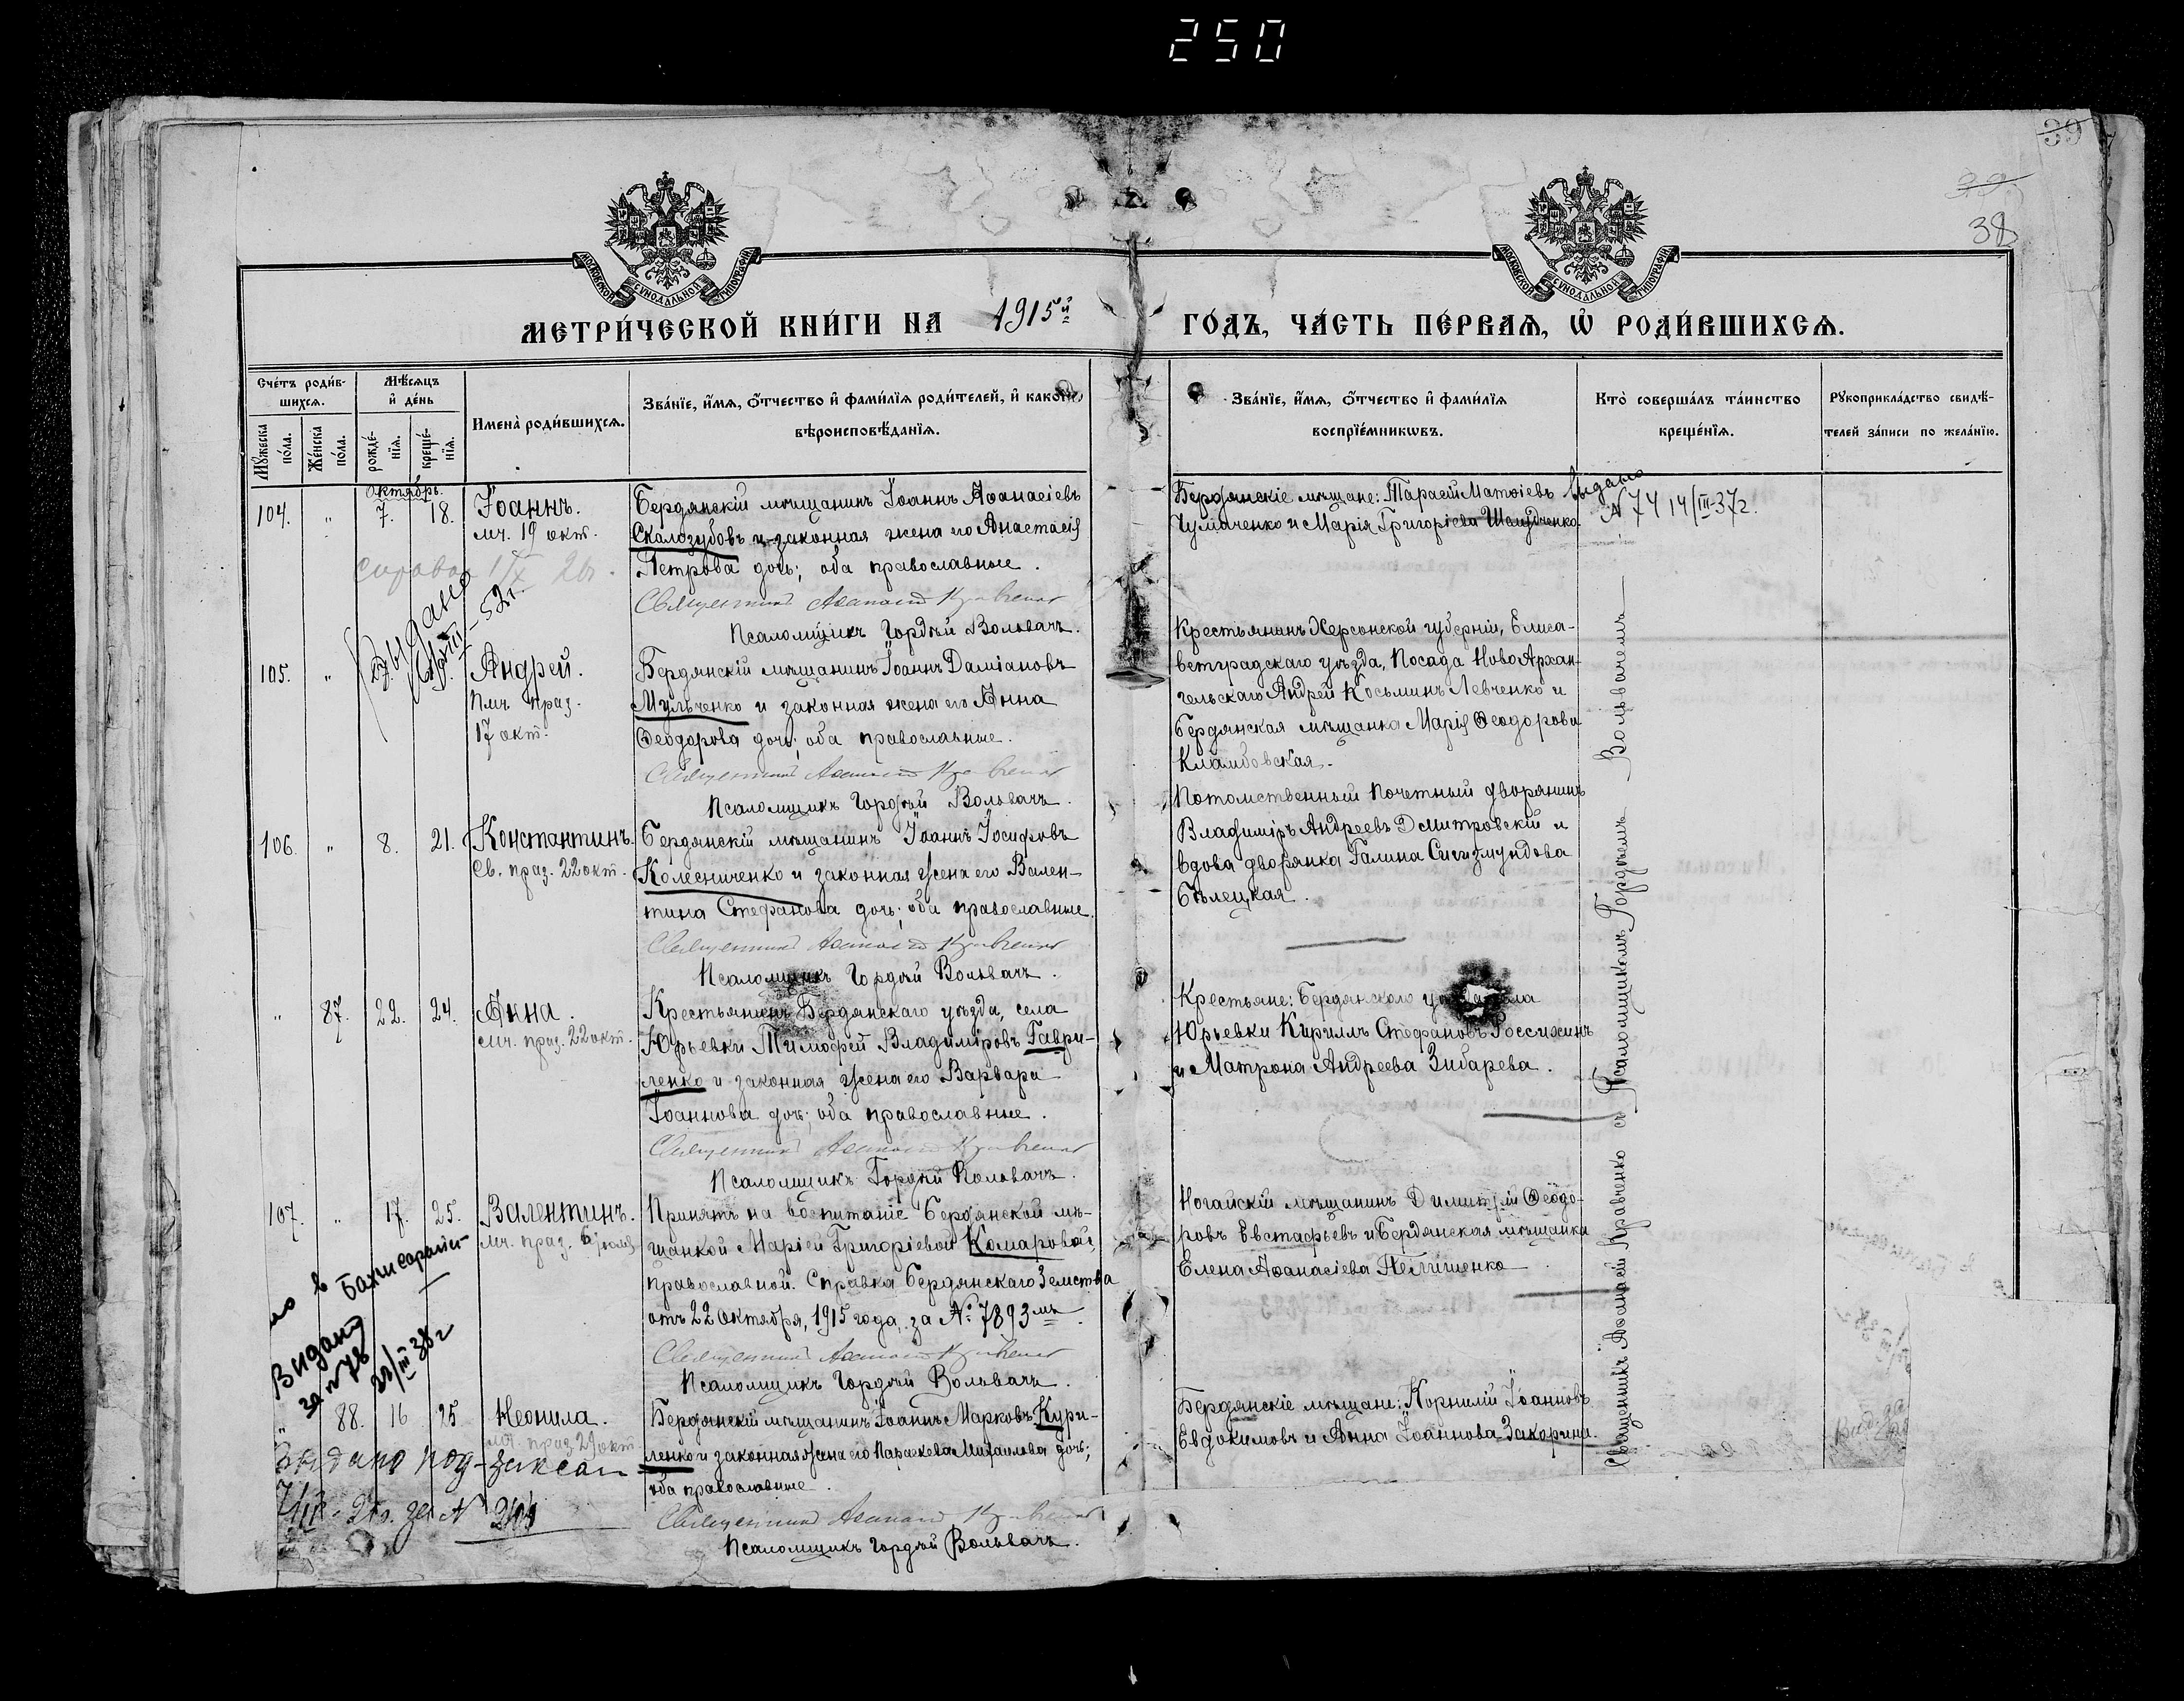 250
39
38
МОСКОВСКОЙ СѴНОДАЛЬНОЙ ТИПОГРАФІИ
МОСКОВСКОЙ СѴНОДАЛЬНОЙ ТИПОГРАФІИ
МЕТРИ́ЧЕСКОЙ КНИ́ГИ НА 1915й ГО́ДЪ, ЧА́СТЬ ПЕ́РВАѦ, Ѡ҆ РОДИ́ВШИХСѦ.
Сче́тъ роди́в-
шихсѧ.
Мꙋ́жеска по́ла.
Же́нска по́ла.
Мѣ́сѧцъ и҆ де́нь
рожде́-нїѧ.
креще́-нїѧ.
Имена̀ роди́вшихсѧ.
Зва́нїе, и҆́мѧ, ѻ҆́тчество и҆ фами́лїѧ роди́телей, и҆ како́гѡ
вѣроисповѣ́данїѧ.
Зва́нїе, и҆́мѧ, ѻ҆́тчество и҆ фами́лїѧ
воспрїе́мникѡвъ.
Кто̀ соверша́лъ та́инство
креще́нїѧ.
Рꙋкоприкла́дство свидѣ́-
телей за́писи по жела́нїю.
Октябрь.
104. " 7. 18. Іоаннъ.
мч. 19 окт.
Бердянскій мѣщанинъ Іоаннъ Аѳанасіевъ
Скалозубовъ и законная жена его Анастасія
Петрова дочь; оба православные.
Священникъ Аѳанасій Кравченко
Псаломщикъ Гордѣй Вольвачъ.
Бердянскіе мѣщане: Тарасій Матѳіевъ
Чумаченко и Марія Григоріева Шелудченко.
Выдано
N 74 14/III-37г.
105. " Андрей.
Пмч. праз.
17 окт.
Выдано
52г.
Бердянскій мѣщанинъ Іоаннъ Даміановъ
Мульченко и законная жена его Анна
Ѳеодорова дочь; оба православные.
Священникъ Аѳанасій Кравченко
Псаломщикъ Гордѣй Вольвачъ.
Крестьянинъ Херсонской губерніи, Елиса-
ветградскаго уѣзда, Посада НовоАрхан-
гельскаго Андрей Косьминъ Левченко и
Бердянская мѣщанка Марія Ѳеодорова
Кламбовская.
106. " 8. 21. Константинъ.
Св. праз. 22 окт.
Бердянскій мѣщанинъ Іоаннъ Іосифовъ
Колесниченко и законная жена его Вален-
тина Стефанова дочь; оба православные.
Священникъ Аѳанасій Кравченко
Псаломщикъ Гордѣй Вольвачъ.
Потомственный почетный дворянинъ
Владиміръ Андреевъ Дмитровскій и
вдова дворянка Галина Сигизмундова
Бѣлецкая.
" 87. 22. 24. Анна.
мч. праз. 22 окт.
Крестьянинъ Бердянскаго уѣзда, села
Юрьевки Тимоѳей Владиміровъ Гаври-
ленко и законная жена его Варвара
Іоаннова дочь; оба православные.
Священникъ Аѳанасій Кравченко
Псаломщикъ Гордѣй Вольвачъ.
Крестьяне: Бердянскаго
Юрьевки Кириллъ Стефановъ Россихинъ
и Матрона Андреева Зибарева.
107. " 17. 25. Валентинъ.
мч. праз. 6 іюля
Принятъ на воспитаніе Бердянской мѣ-
щанкой Маріей Григоріевой Комаровой,
православной. Справка Бердянскаго Земства
отъ 22 Октября, 1915 года, за №7893мъ.
Священникъ Аѳанасій Кравченко
Псаломщикъ Гордѣй Вольвачъ.
Ногайскій мѣщанинъ Димитрій Ѳеодо-
ровъ Евстафьевъ и Бердянская мѣщанка
Елена Аѳанасіева Пелишенко
в Бахчисарайск
Видано
за N 78
23/III 38г
" 88. 16 25 Неонила.
мч. праз 29 окт.
Бердянскій мѣщанинъ Іоаннъ Марковъ Кури-
ленко и законная жена его Параскева Михаилова дочь;
оба православные.
Священникъ Аѳанасій Кравченко
Псаломщикъ Гордѣй Вольвачъ.
Бердянскіе мѣщане: Корнилій Іоанновъ
Евдокимовъ и Анна Іоаннова Закорина.
Выдано под-
Священникъ Аѳанасій Кравченко съ Псаломщикомъ Гордѣемъ Вольвачемъ